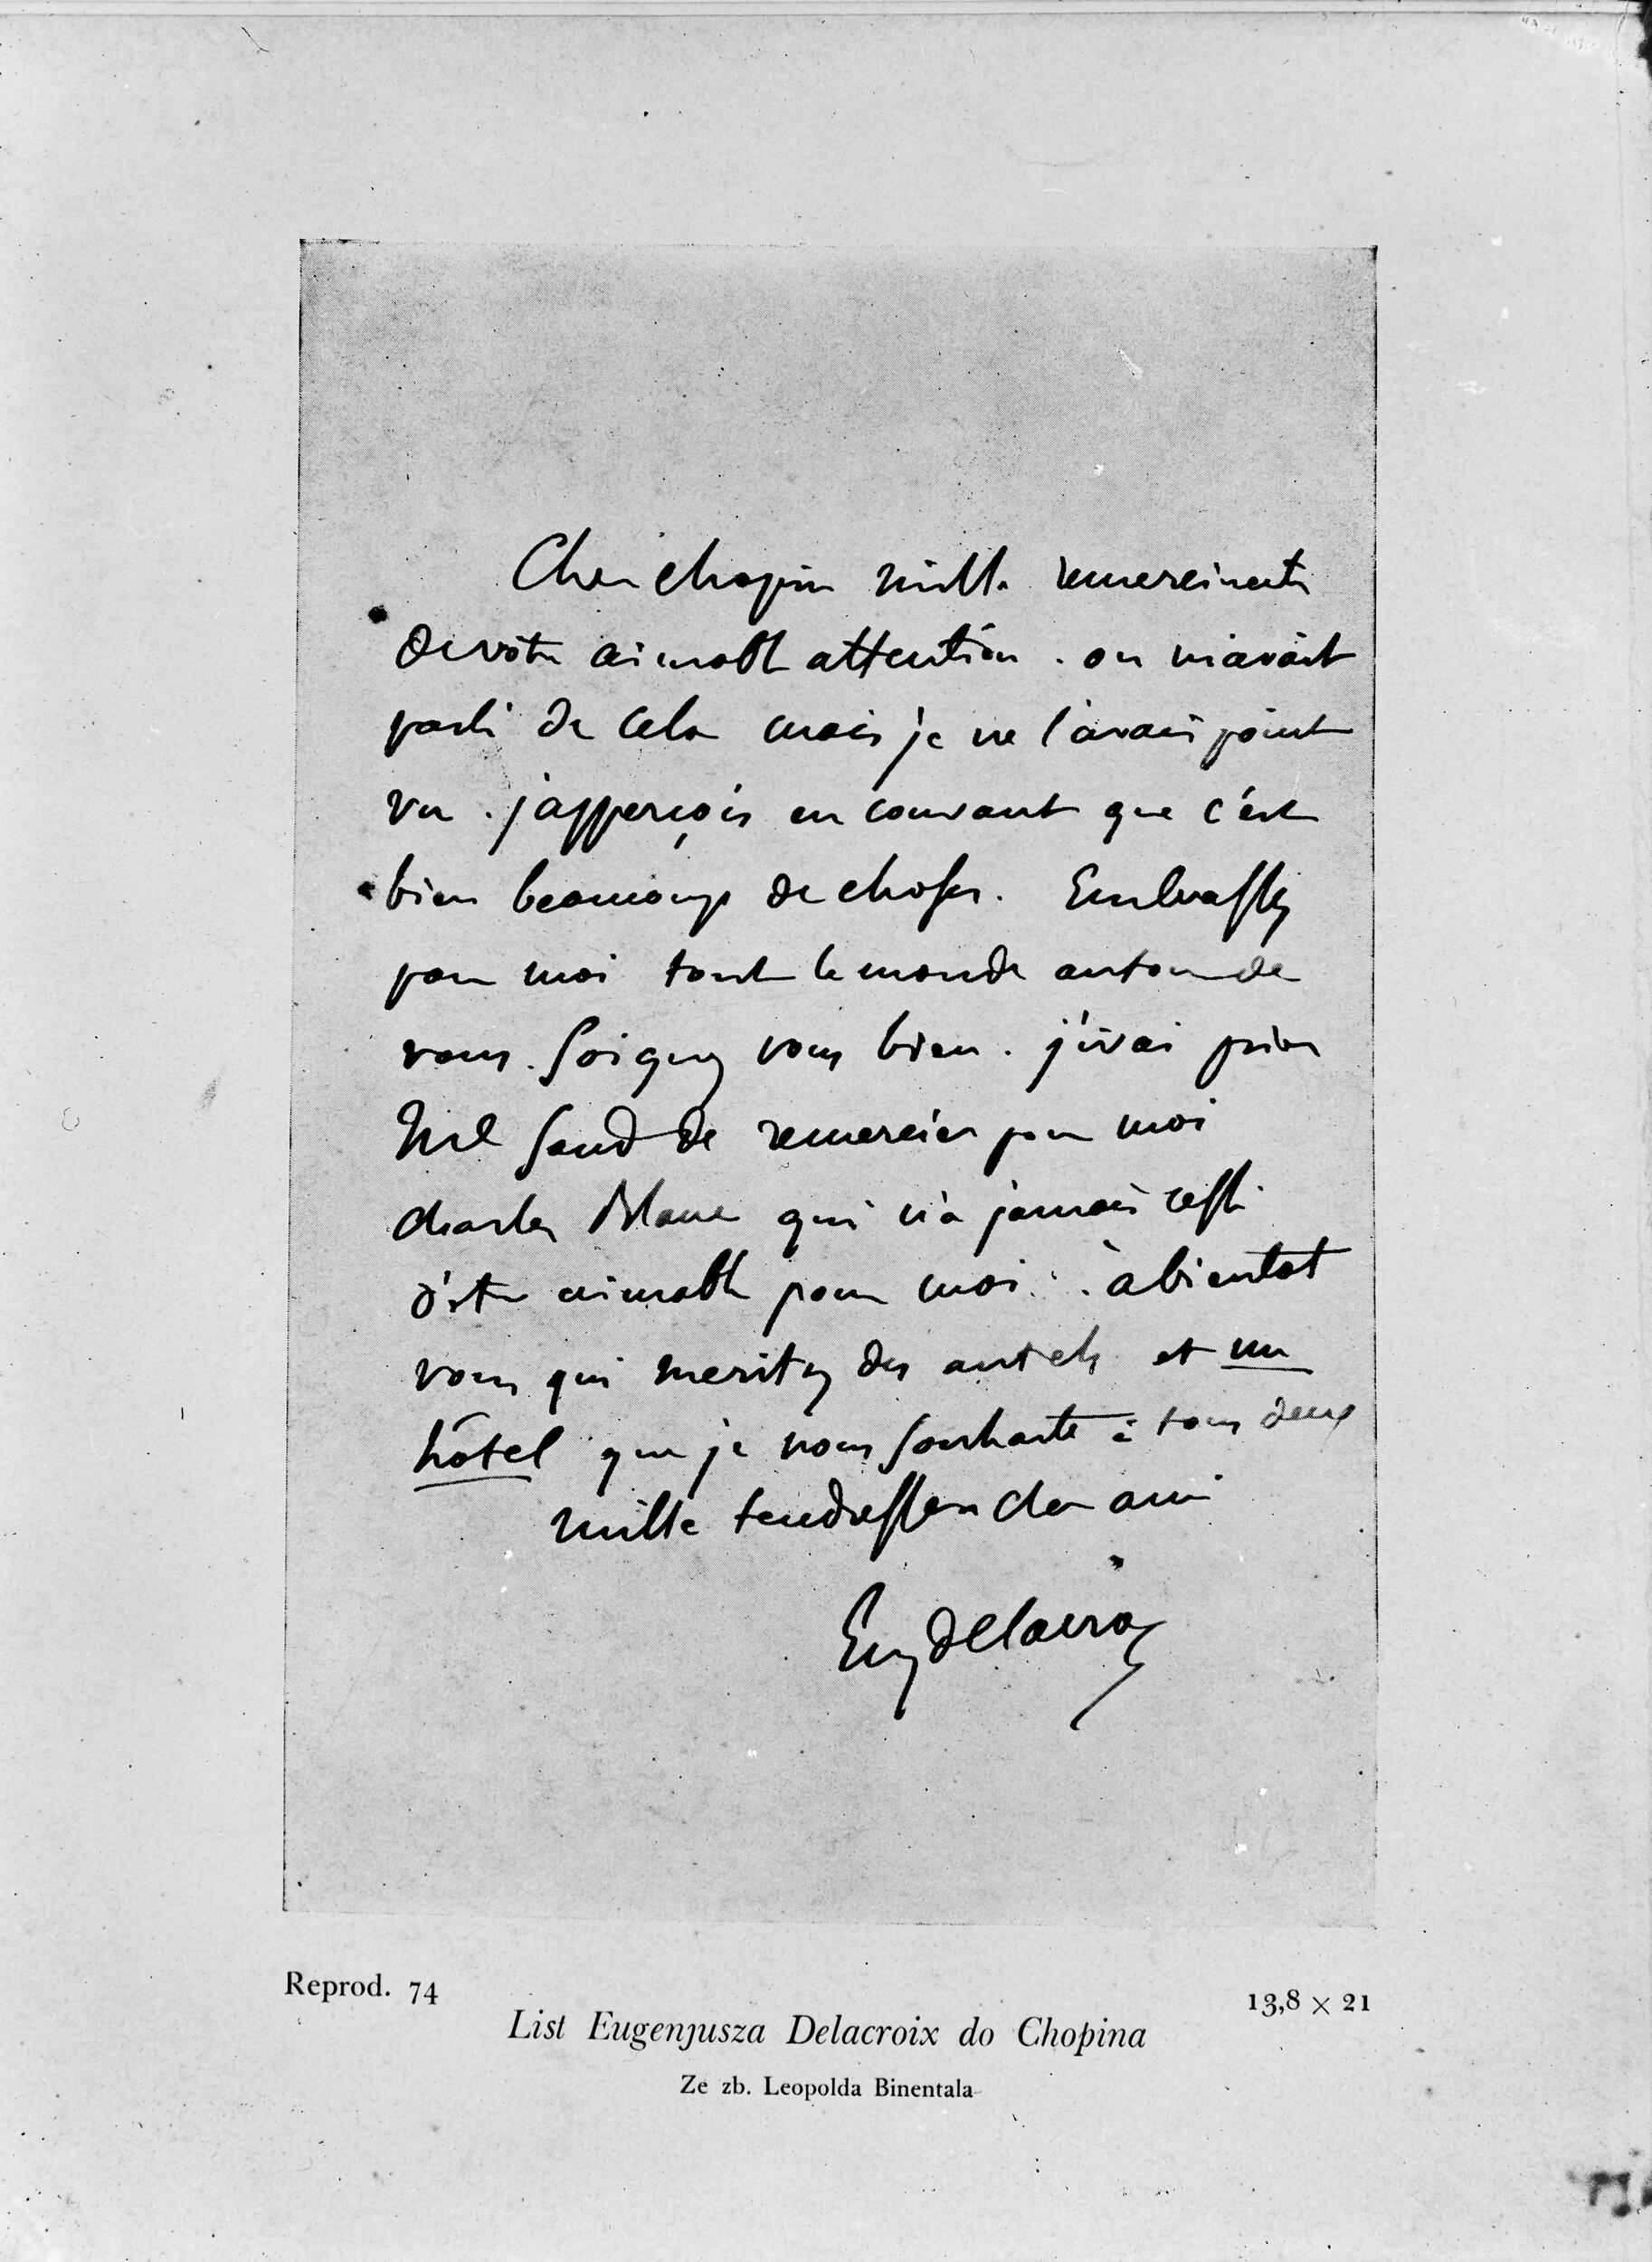 Cher chopin mille remerciments
de votre aimable attention. on m'avait
parlé de cela mais je ne l'avais point
vu. j'apperçois en courant que c'est
bien beaucoup de choses. Embrassez
pour moi tout le monde autour de
vous. Soignez vous bien. j'irai prier
Me Sand de remercier pour moi
charles Blanc qui n'a jamais cessé
d'être aimable pour moi. à bientot
vous qui meritez des autels et un
hôtel que je vous souhaite à tous deux
mille tendresses cher ami
Eug Delacroix
Reprod. 74
13,8 × 21
List Eugenjusza Delacroix do Chopina
Ze zb. Leopolda Binentala